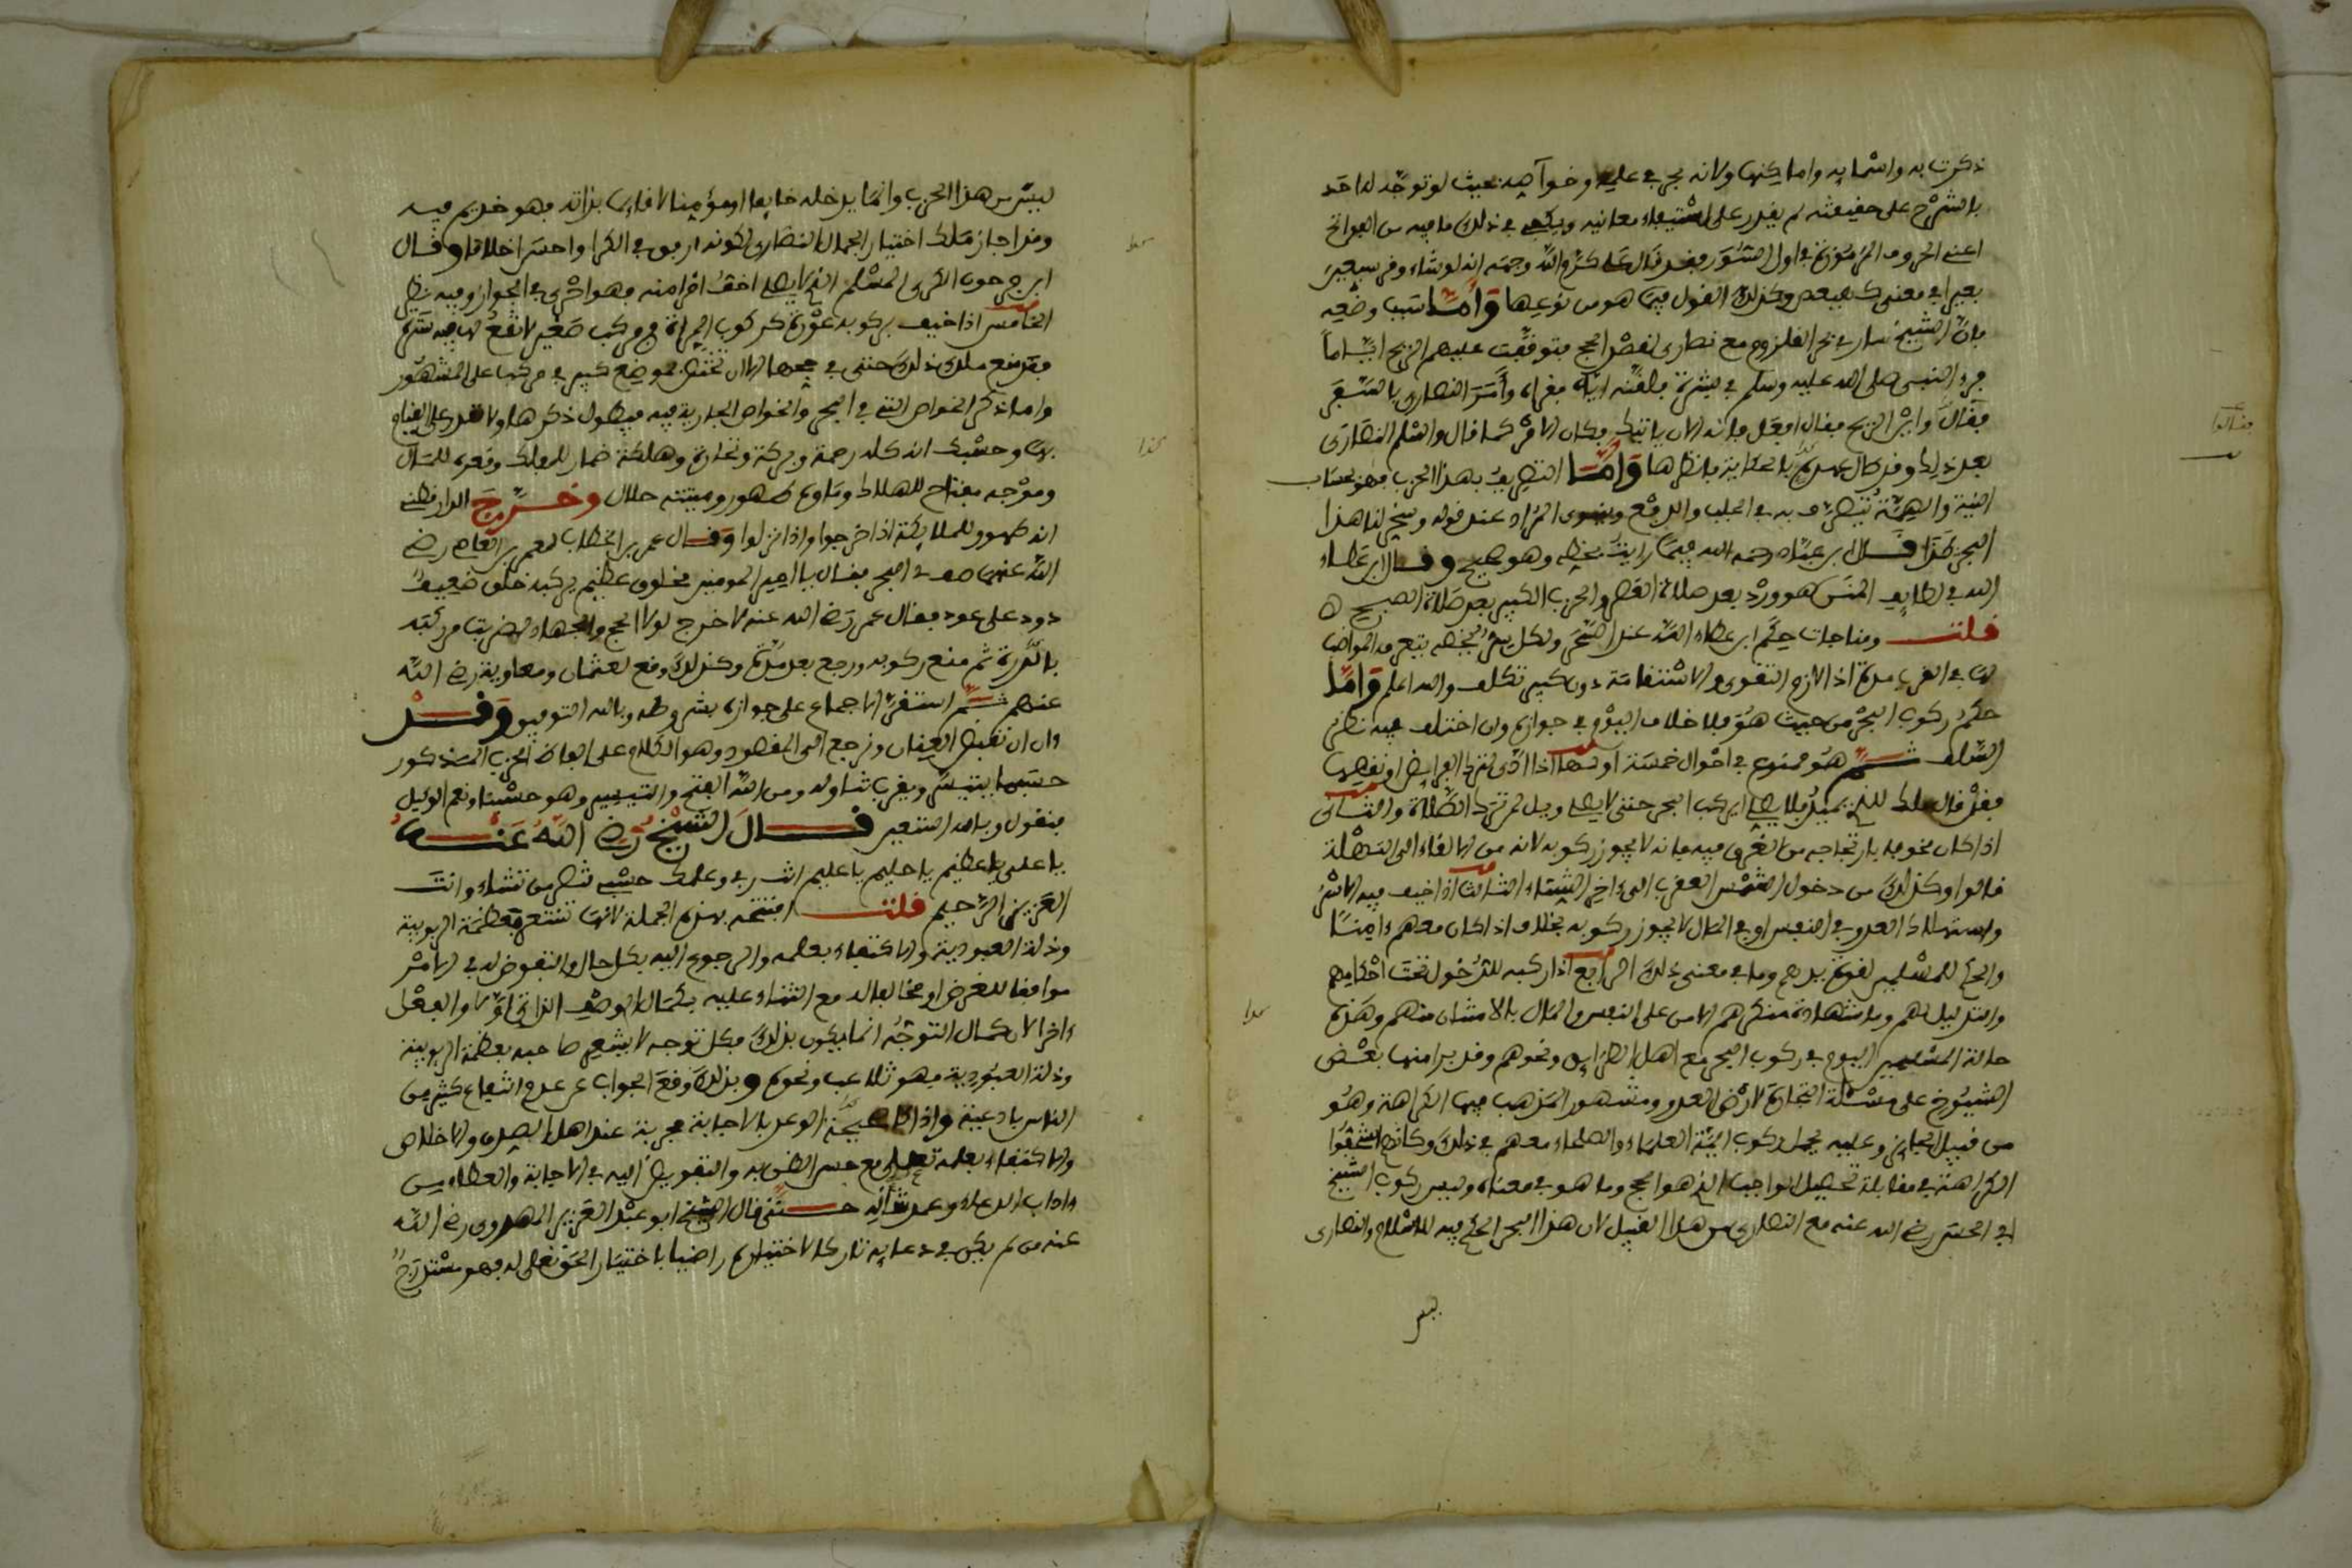 ذكرت به واسمايه واما يكنها ولانه بحر في علمه وخواصه بحيث لو توجه له احد
بالشرح على حقيقته لم يقدر على استيفاء معانيه ويكفي في ذلك ما فيه من الفواتح
اعني الحروف المرموزة في اول السور فقد قال علي كرم الله وجهه انه لو شاء وقر سبعين
بعيرا في معنى كهيعص وكذلك القول فيما هو من نوعها وأما سبب وضعه
فان الشيخ سار في بحر القلزوم مع نصارى لقصد الحج فتوقفت عليهم الريح اياما
فرء النبي صلى الله عليه وسلم في مبشرة فلقنه اياه فقراه وأمر النصارى بالسفر
فقال واين الريح فقال افعل فانه الان ياتيك فكان الامر كما قال واسلم النصارى
بعد ذلك وأما التصريف بهذا الحزب فهو بحساب
النية والهمة يتصرف به في الجلب والدفع وينوى المراد عند قوله وسخر لنا هذا
البحر قال ابن عباد رحمه الله فيما رايت بخطه وهو صحيح وقال ابن عطاء
الله في لطايف المنن هو ورد بعد صلاة العصر والحزب الكبير بعد صلاة الصبح
قلت ومناجات حكم ابن عطاء الله عند السحر
دون كبير تكلف والله اعلم وأما
حكم ركوب البحر من حيث هو فلا خلاف اليوم في جوازه وان اختلف فيه نظر
السلف ثم هو ممنوع في احوال خمسة اولها اذا ادى لترك الفرايض او نقصها
فقد قال ملك للذي يميد فلا يصلي ايركب البحر حتى لا يصلي ويل لمن ترك الصلاة والثاني
اذا كان مخوفا بارتجاجه من الغرق فيه فانه لا يجوز ركوبه لانه من الالقاء الى التهلكة
قالوا وكذلك من دخول الشمس العقرب الى اخر الشتاء الثالث اذا خيف فيه الاسر
واستهلاك العدو في النفس او في المال لا يجوز ركوبه بخلاف اذا كان معهم ءامنا
والحكم للمسلمين لقوة يدهم وما في معنى ذلك الرابع اذا ركبه للدخول تحت احكامهم
والتذليل لهم ومشاهدة منكرهم الامن على النفس والمال بالامتثان منهم وهذه
حالة المسلمين اليوم في ركوب البحر مع اهل الطرايد ونحوهم وقد برا منها بعض
الشيوخ على مسئلة التجارة لارض العدو ومشهور المذهب فيها الكراهة وهو
من قبيل الجايز وعليه يحمل ركوب ايمة العلماء والصلحاء معهم في ذلك وكانهم استخفوا
الكراهة في مقابلة تحصيل الواجب الذي هو الحج وما هو في معناه وليس ركوب الشيخ
ابي الحسن رضي الله عنه مع النصارى من هذا القبيل لان هذا البحر الحكم فيه للاسلام والنصارى
ليس
ليس من هذا الحزب وانما يدخله خايفا او مؤمنا لا قايما بذاته فهو خديم فيه
وقد اجاز ملك اختيار الجمال النصارى لكونه ارفق في الكرا واحسن اخلاقا وقال
ابن حبيب الكرى المسلم الذي لا يصلي اخف امرا منه فهو احرى في الجواز وفيه نظر
الخامس اذا خيف بركوبه عورة كركوب المراة في مركب صغير لا تقع لها فيه سترة
فقد منع ملك ذلك حتى في حجها الا ان تختص بموضع كبير في مركب على المشهور
واما ذكر الخواص التي في البحر والخواص الجارية فيه فيطول ذكرها ولا قدر على القيام
بها وحسبك انه كله رحمة وبركة وتجارة وهلكة
وموجه مفتاح للهلاك وماؤه طهور وميتته حلال وخرج الدارقطني
انه طهور للملايكة اذا خرجوا واذا نزلوا وقال عمر بن الخطاب لعمرو بن العاص رضي
الله عنهما صف لي البحر فقال يا امير المومنين مخلوق عظيم يركبه خلق ضعيف
دود على عود فقال عمر رضي الله عنه لا خرج لولا الحج والجهاد لضربت من ركبه
بالدرة ثم منع ركوبه ورجع بعد مدة وكذلك وقع لعثمان ومعاوية رضي الله
عنهم ثم استقر الاجماع على جوازه بشروطه وبالله التوفيق وقد
ءان ان نقبض العنان ونرجع الى المقصود وهو الكلام على الفاظ الحزب المذكور
حسبما يتيسر ويقرب تناوله ومن الله الفتح والتيسير وهو حسبنا ونعم الوكيل
فنقول وبالله استعين قال الشيخ رضي الله عنه
يا علي يا عظيم يا حليم يا عليم انت ربي وعلمك حسبي تنصر من تشاء وانت
العزيز الرحيم قلت افتتحه بهذه الجملة لانها تشعر بعظمة الربوبية
وذلة العبودية والاكتفاء بعلمه والرجوع اليه بكل حال والتفويض له في الامر
موافقا للغرض او مخالفا له مع الثناء عليه بكمال الوصف الذاتي اولا والفعل
ءاخرا لان كمال التوجه انما يكون بذلك فكل توجه لا يشعر صاحبه بعظمة الربوبية
وذلة العبودية فهو تلاعب ونحوه وبذلك وقع الجواب عن عدم انتفاع كثير من
الناس بادعية واذكار صحيحة الوعد بالاجابة مجربة عند اهل الصدق والاخلاص
والاكتفاء بعلمه تعلى مع حسن الظن به والتفويض اليه في الاجابة والعطاء من
ءاداب الدعاء وعمدته حتى قال الشيخ ابو عبد العزيز المهدوي رضي الله
عنه من لم يكن في دعايه تاركا لاختياره راضيا باختيار الحق تعلى له فهو مستدرج